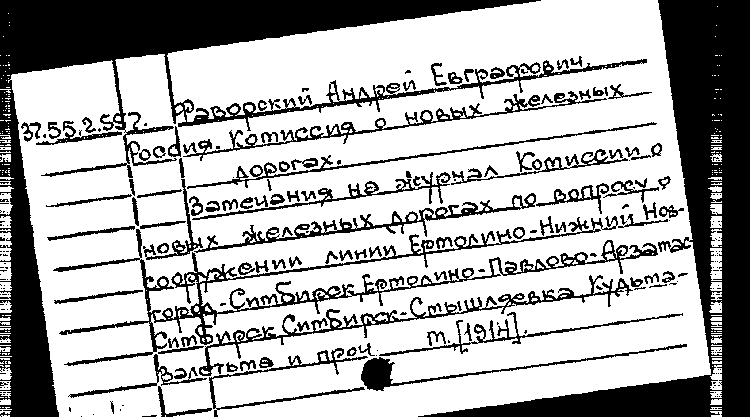 Фаворский, Андрей Евграфович.
37.55.2.557.
Россия. Комиссия о новых железных
дорогах.
Замечания на журнал Комиссии о
новых железных дорогах по вопросу о
сооружении линии Ермолино-Нижний Нов-
город-Симбирск, Ермолино-Павлово-Арзамас-
Симбирск, Симбирск-Смышляевка, Кудьма-
Залетьма и проч. т. [1914].